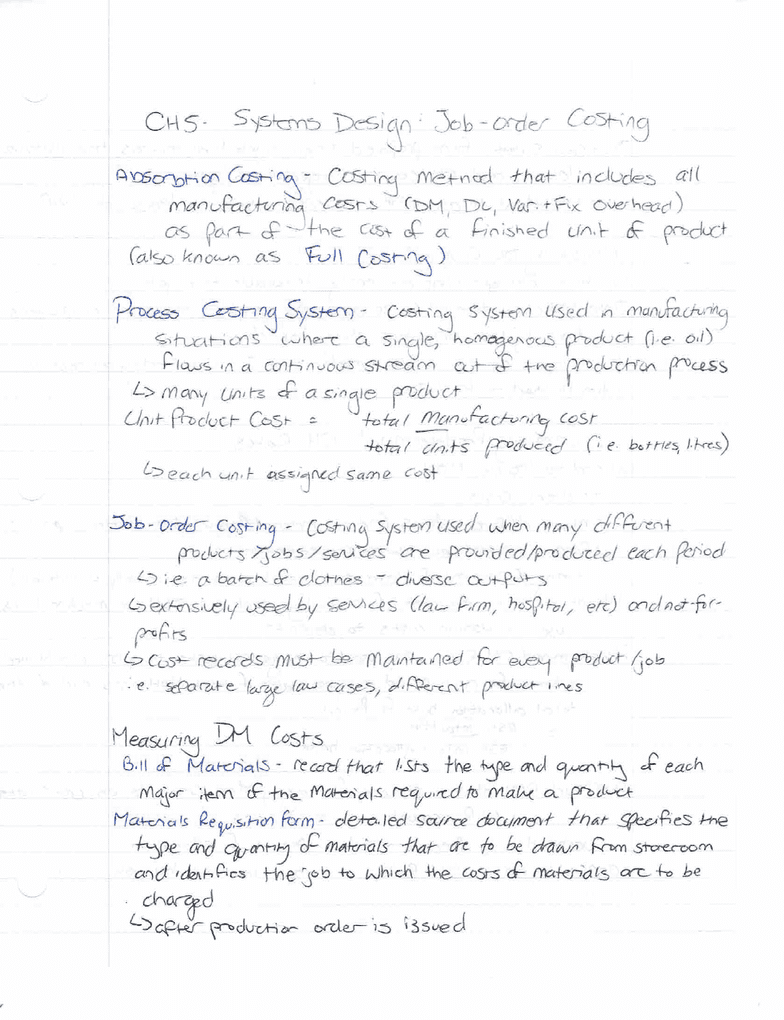 CH5- Systems Design: Job-order Costing
Absorption Costing - Costing method that includes all
manufacturing costs (DM, DL, Var. + Fix overhead)
as part of the cost of a finished unit of product
(also known as Full Costing)
Process Costing System - costing system used in manufacturing
situations where a single, homogenous product (i.e. oil)
flows in a continuous stream out of the production process
↳ many units of a single product
Unit Product Cost = total manufacturing cost
total units produced (i.e. bottles, litres)
↳ each unit assigned same cost
Job-Order Costing - costing system used when many different
products/jobs/services are provided/produced each period
↳ i.e. a batch of clothes - diverse outputs
↳ extensively used by services (law firm, hospital, etc) and not-for-
profits
↳ Cost records must be maintained for every product/job
i.e. separate large law cases, different product lines
Measuring DM Costs
Bill of Materials - record that lists the type and quantity of each
major item of the materials required to make a product
Materials Requisition form - detailed source document that specifies the
type and quantity of materials that are to be drawn from storeroom
and identifies the job to which the costs of materials are to be
charged
↳ after production order is issued